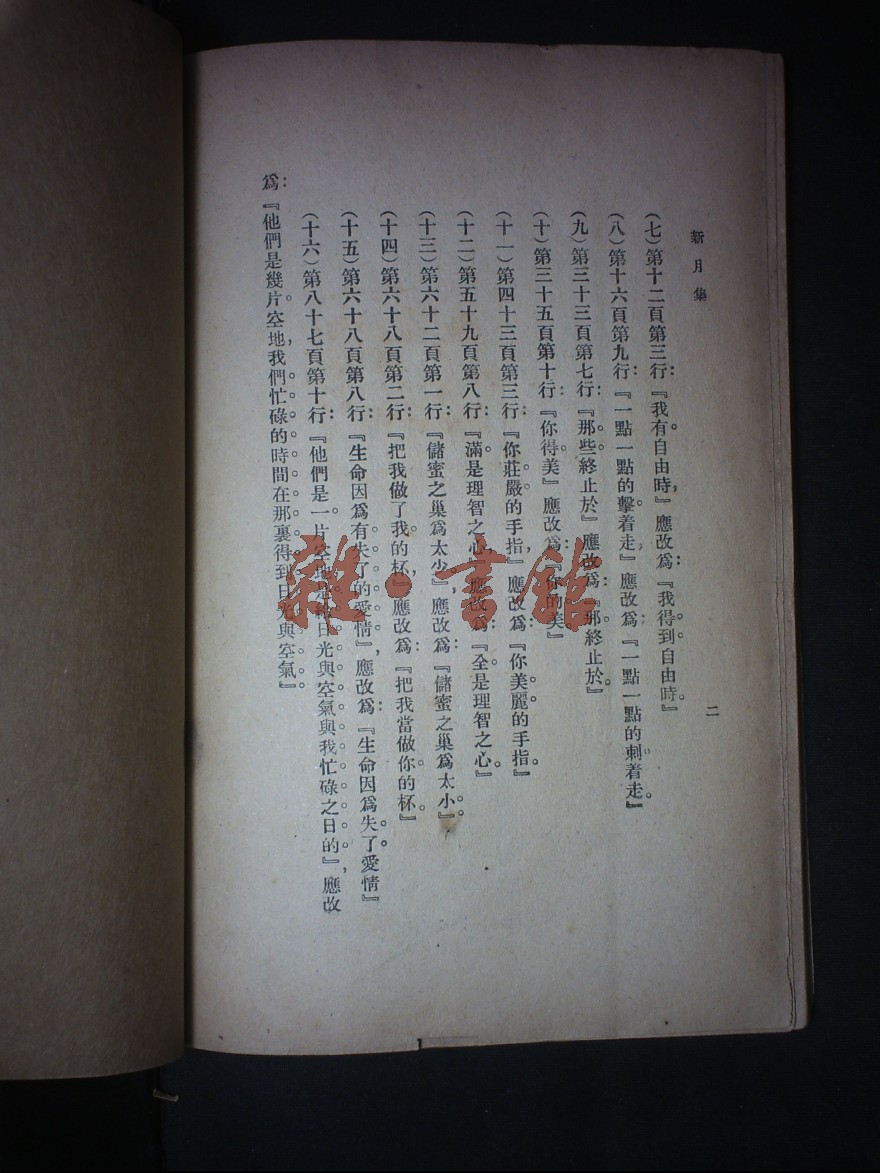 新月集
二
(七)第十二頁第三行：『我有自由時』，應改爲：『我得到自由時』
(八)第十六頁第九行：『一點一點的擊着走』應改爲：『一點一點的刺着走』
(九)第三十三頁第七行：『那些終止於』應改爲：『那終止於』
(十)第三十五頁第十行：『你得美』應改爲：『你的美』
(十一)第四十三頁第三行：『你莊嚴的手指』應改爲：『你美麗的手指』
(十二)第五十九頁第八行：『滿是理智之心』應改爲：『全是理智之心』
(十三)第六十二頁第一行：『儲蜜之巢爲太少』，應改爲：『儲蜜之巢爲太小』
(十四)第六十八頁第二行：『把我做了我的杯』，應改爲：『把我當做你的杯』
(十五)第六十八頁第八行：『生命因爲有失了的愛情』，應改爲：『生命因爲失了愛情』
(十六)第八十七頁第十行：『他們是一片空地是給日光與空氣與我忙碌之日的』，應改
爲：『他們是幾片空地，我們忙碌的時間在那裏得到日光與空氣』
雜·書館